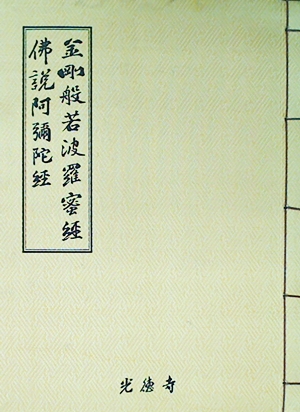 金剛般若波羅蜜經
佛說阿彌陀經
光德寺